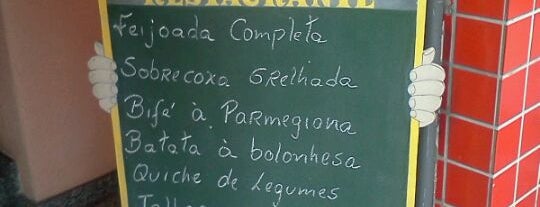 RESTAURANTE
Feijoada Completa
Sobrecoxa Grelhada
Bifé à Parmegiona
Batata à bolonhesa
Quiche de Legumes